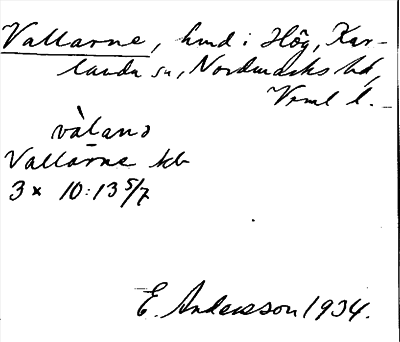 Vallarne, hmd i Hög, Kar-
landa sn, Nordmarks hd,
Vrml l.
vàlanɔ
Vallarne kb
3 x 10:13 5/7
E. Andersson 1934.